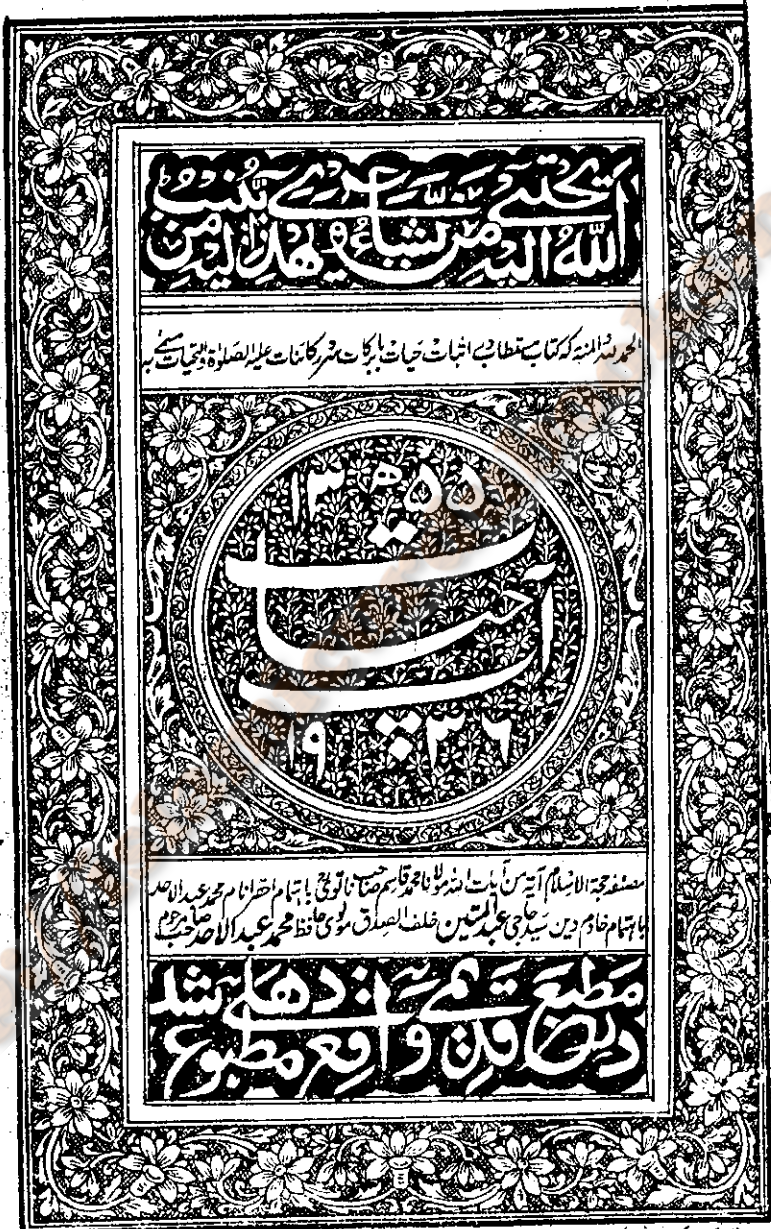 اَللّٰهُ یَجْتَبِیْ اِلَیْهِ مَنْ یَّشَآءُ وَ یَهْدِیْ اِلَیْهِ مَنْ یُّنِیْبُ
الحمد للہ والمنہ کہ کتاب مستطاب در اثبات حیات بابرکات سرور کائنات علیہ الصلوٰۃ والتحیات مسمّٰی بہ
۱۳۵۵ھ
آب حیات
۱۹۳۶
مصنفہ حجۃ الاسلام آیۃ من آیات اللہ مولانا محمد قاسم صاحب نانوتویؒ باہتمام احقر انام محمد عبدالاحد
باہتمام خادم دین سید حاجی عبدالمتین خلف الصدق مولوی حافظ محمد عبدالاحد صاحب مرحوم
در مطبع قدیمی واقع دھلی مطبوع شد